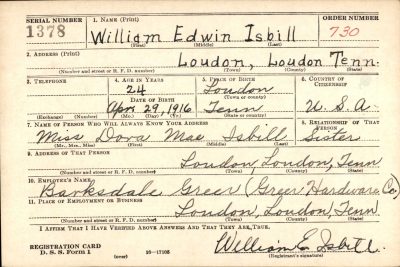 SERIAL NUMBER 1. NAME (Print) ORDER NUMBER
1378 William Edwin Isbill 730
(First) (Middle) (Last)
2. ADDRESS (Print)
Loudon, Loudon Tenn.
(Number and street or R. F. D. number) (Town) (County) (State)
3. TELEPHONE 4. AGE IN YEARS 5. PLACE OF BIRTH 6. COUNTRY OF CITIZENSHIP
24 Loudon
DATE OF BIRTH (Town or county)
Apr. 29, 1916 Tenn U.S.A.
(Exchange) (Number) (Mo.) (Day) (Yr.) (State or country)
7. NAME OF PERSON WHO WILL ALWAYS KNOW YOUR ADDRESS 8. RELATIONSHIP OF THAT PERSON
Miss Dora Mae Isbill Sister
(Mr., Mrs., Miss) (First) (Middle) (Last)
9. ADDRESS OF THAT PERSON
Loudon, Loudon, Tenn
(Number and street or R. F. D. number) (Town) (County) (State)
10. EMPLOYER'S NAME
Barksdale Greer (Greer Hardware Co.)
11. PLACE OF EMPLOYMENT OR BUSINESS
Loudon, Loudon, Tenn
(Number and street or R. F. D. number) (Town) (County) (State)
I AFFIRM THAT I HAVE VERIFIED ABOVE ANSWERS AND THAT THEY ARE TRUE.
REGISTRATION CARD William E. Isbill
D. S. S. Form 1 (over) 16-17105 (Registrant's signature)